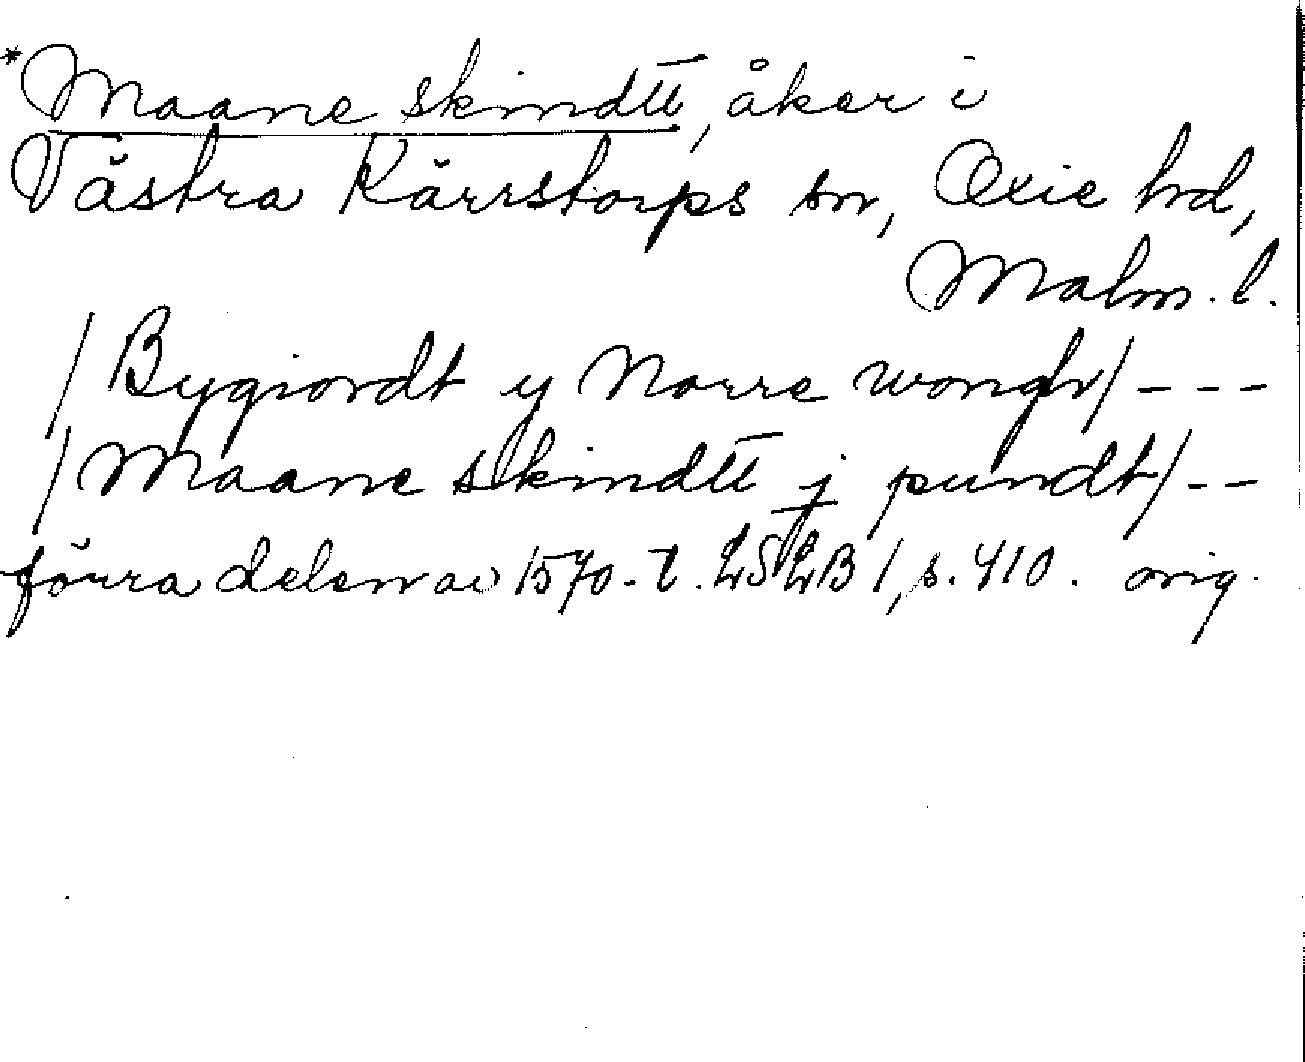 *Maane skindtt, åker i
Västra Kärrstorps sn, Oxie hd,
Malm. l.
/ Bygiordt y Norre wongh / - - -
/ Maane skindtt j pundt / - -
förra delen av 1570-t. LSLB 1, s. 410. orig.